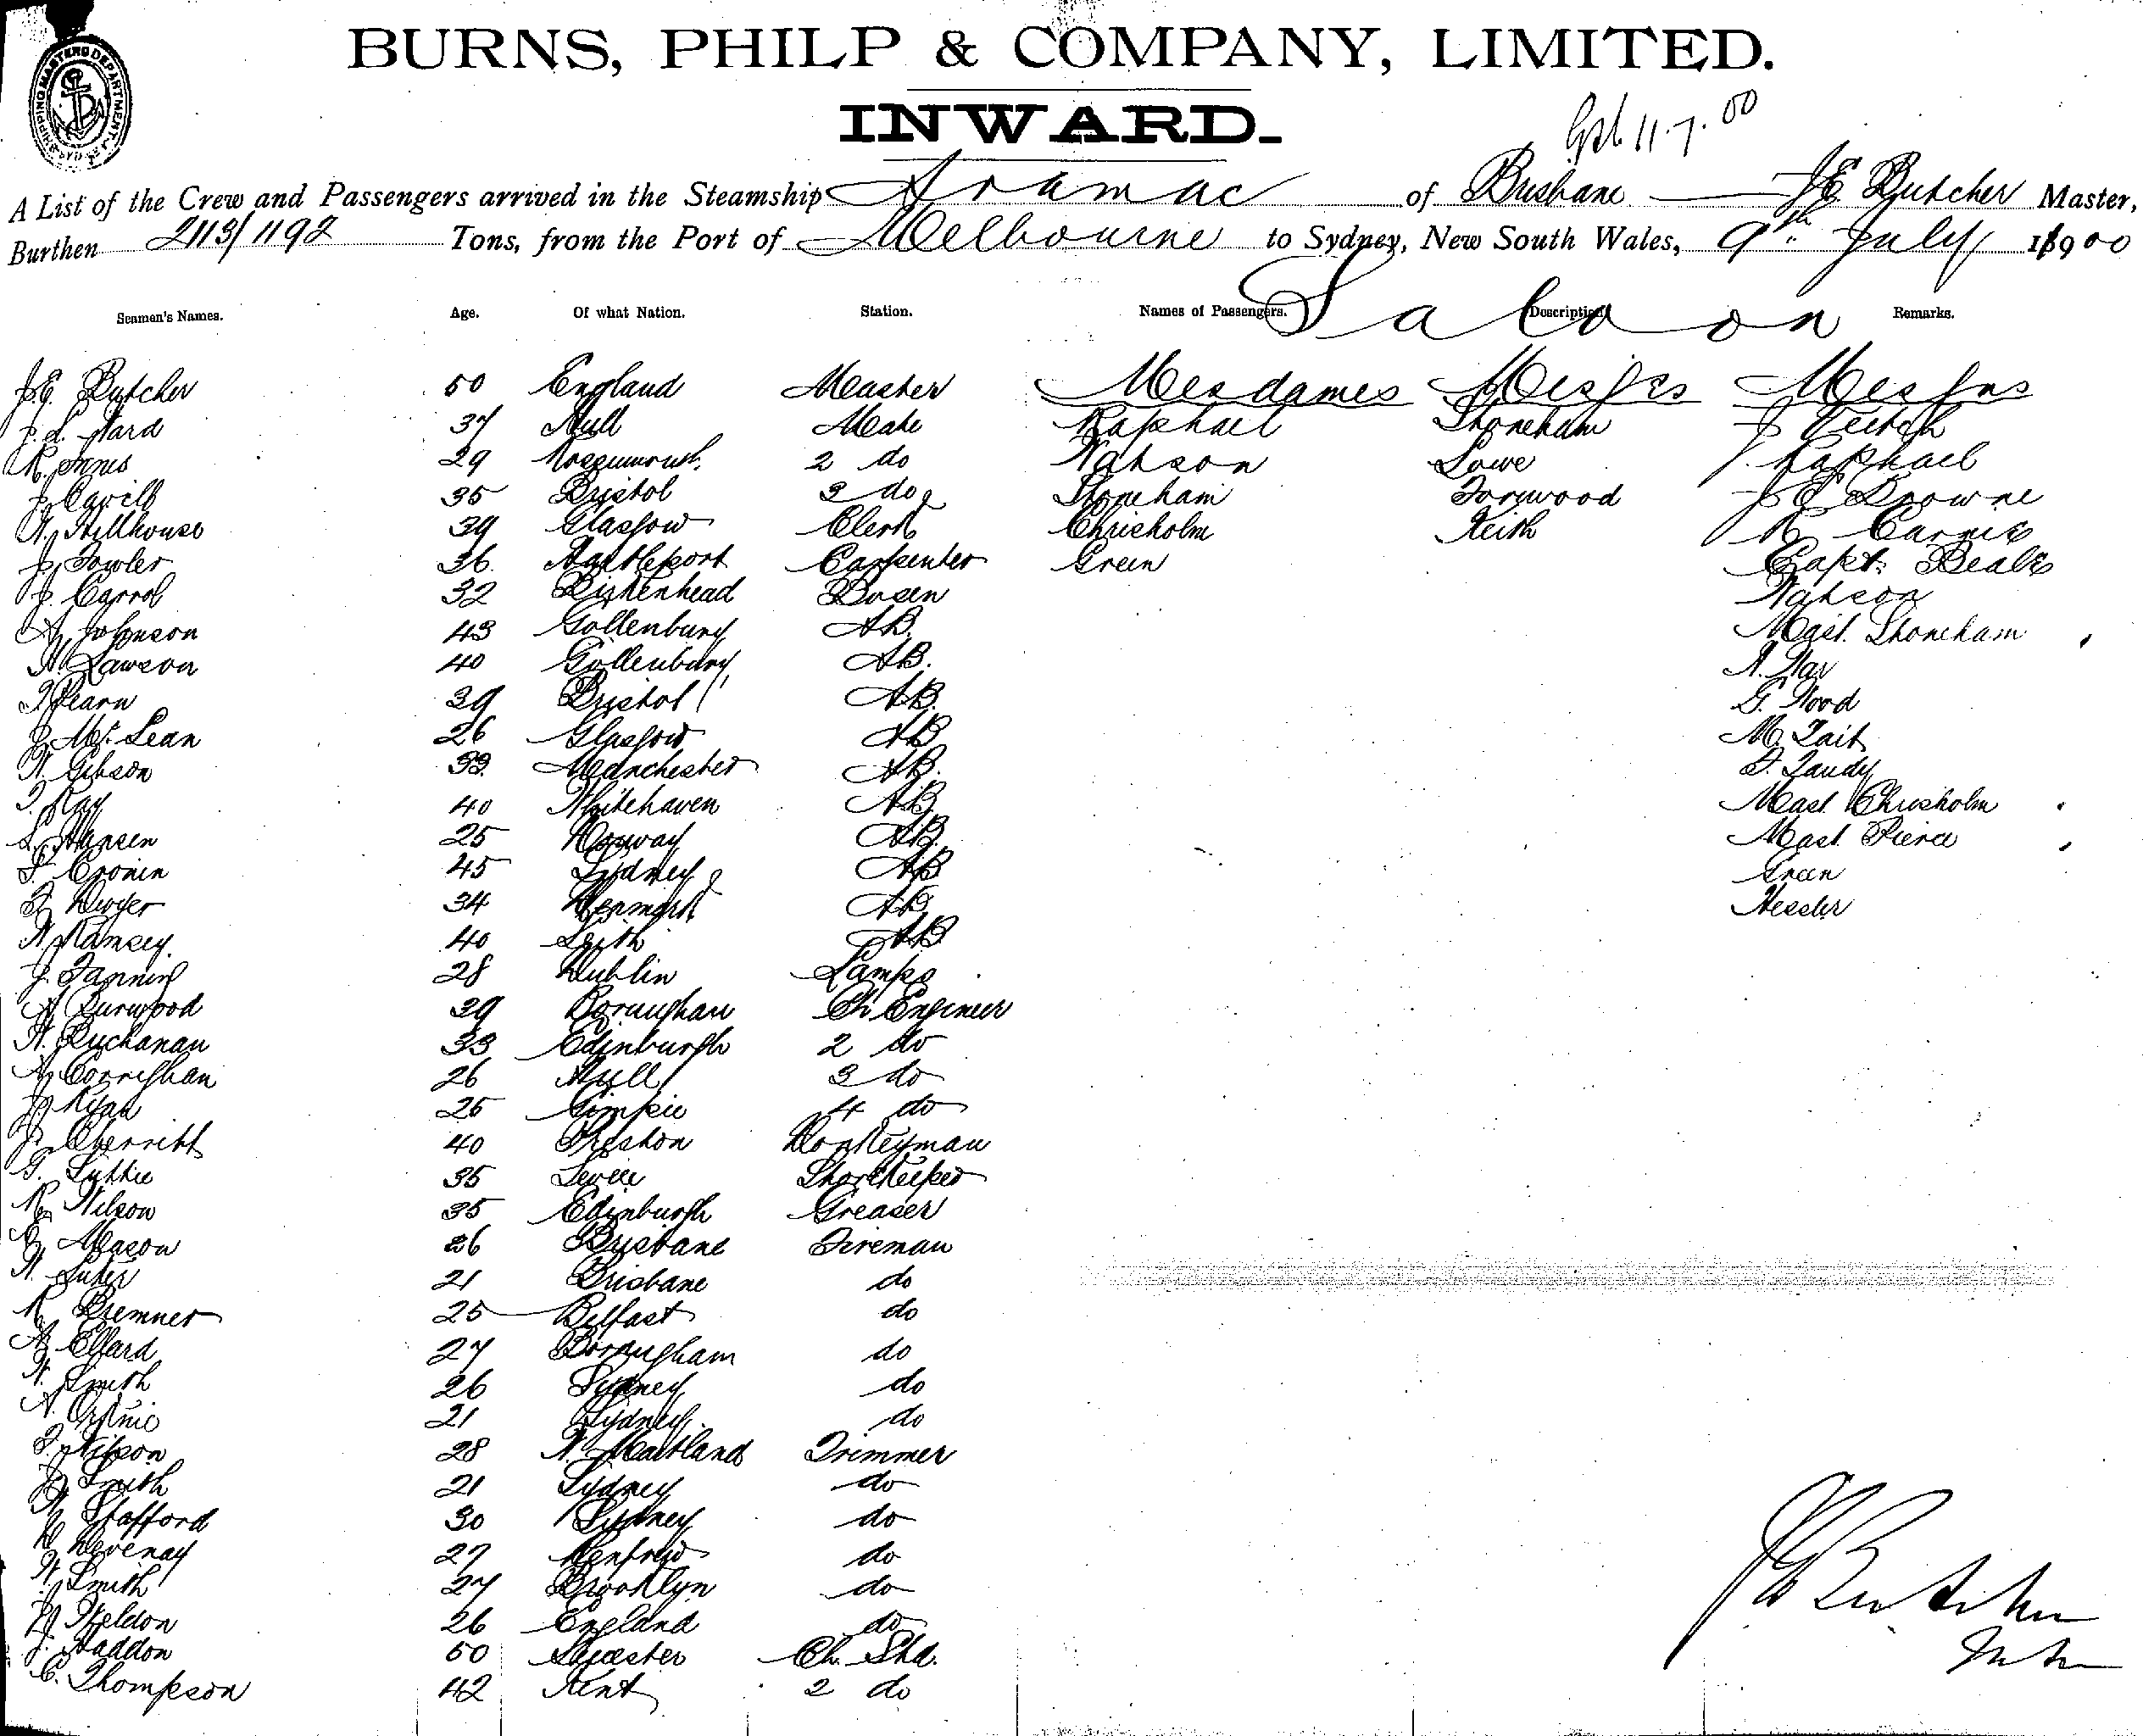 BURNS, PHILP & COMPANY, LIMITED.
INWARD.
11.7.00
SHIPPING MASTERS DEPARTMENT
A List of the Crew and Passengers arrived in the Steamship Aramac of Brisbane J E Butcher Master,
Burthen 2113/1192 Tons, from the Port of Melbourne to Sydney, New South Wales, 9th July 1900
Saloon
Seamen's Names. Age. Of what Nation. Station. Names of Passengers. Description Remarks.
J.E. Butcher 50 England Master Mesdames Misses Messrs
Ward 37 Hull Mate Raphael Stoneham J Veitch
R. Innes 29 2 do Watson Lowe J. Raphael
J. Cavill 35 Bristol 3 do Stoneham Forwood J E Browne
Hillhouse 39 Glasgow Clerk Chrisholm Keith R Carnie
J. Fowler 36 Carpenter Green Capt. Beale
J. Carrol 32 Birkenhead Bosen Watson
A. Johnson 43 Gollenburg AB. Mast. Stoneham
A. Lawson 40 Gollenburg AB.
Hearn 39 Bristol AB. G. Wood
J. McLean 26 Glasgow AB M. Tait
W. Gibson 33 Manchester AB. Tandy
T. Ray 40 Whitehaven AB Mast. Chrisholm
L. Hansen 25 Norway AB. Mast. Pierce
Cronin 45 Sydney AB Green
Dwyer 34 Denmark AB Hessler
Ramsey. 40 Leith AB
J. Fanning 28 Dublin Lamps
A Burwood 39 Ch Engineer
W. Buchanan 33 Edinburgh 2 do
Corrighan 26 Hull 3 do
Ryan 25 Gimpie 4 do
J. Cherritt 40 Preston Donkeyman
G. Luttie 35 Storekeeper
R. Wilson 35 Edinburgh Greaser
Mason 26 Brisbane Fireman
21 Brisbane do
R Bremner 25 Belfast do
A. Ellard 27 do
W. Smith 26 Sydney do
A. 21 Sydney do
Wilson 28 W. Maitland Trimmer
J. Smith 21 Sydney do
Stafford 30 Sydney do
D Devenay 27 Renfrew do
W. Smith 27 Brooklyn do
Weldon 26 England do
J. Haddon 50 Leicester Ch. Std.
C. Thompson 42 Kent 2 do
J E Butcher